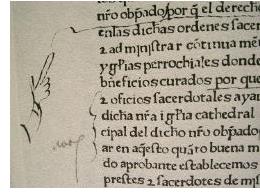 nr̃o obp̃ado / por q̃ el derecho
en las dichas ordenes sacer
⁊ administrar cõtinua mẽ
y gl̃ias perrochiales donde
bñeficios curados por que
⁊ oficios sacerdotales ayan
dicha nr̃a igl̃ia cathedral
cipal del dicho nr̃o obp̃ado
ar en aq̃sto quãto buena m
do aprobante establecemos
prestes ⁊ sacerdotes de mis